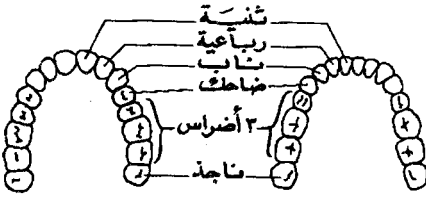 ثنية
رباعية
ناب
ضاحك
٣ أضراس
ناجذ